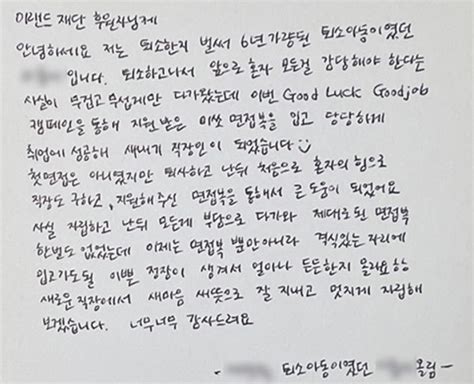 이랜드 재단 후원자님께
안녕하세요 저는 퇴소한지 벌써 6년가량된 퇴소아동이였던
입니다. 퇴소하고나서 앞으로 혼자 모든걸 감당해야 한다는
사실이 무겁고 무섭게만 다가왔는데 이번 Good Luck Goodjob
캠페인을 통해 지원 받은 이쏘 면접복을 입고 당당하게
취업에 성공해 새내기 직장인이 되었습니다
첫면접은 아니였지만 퇴사하고 난뒤 처음으로 혼자의 힘으로
직장도 구하고, 지원해주신 면접복을 통해서 큰 도움이 되었어요
사실 자립하고 난뒤 모든게 부담으로 다가와 제대로된 면접복
한벌도 없었는데 이제는 면접복 뿐만아니라 격식있는 자리에
입고가도될 이쁜 정장이 생겨서 얼마나 든든한지 몰라요ㅎㅎ
새로운 직장에서 새마음 새뜻으로 잘 지내고 멋지게 자립해
보겠습니다. 너무너무 감사드려요
- 퇴소아동이였던 올림 -